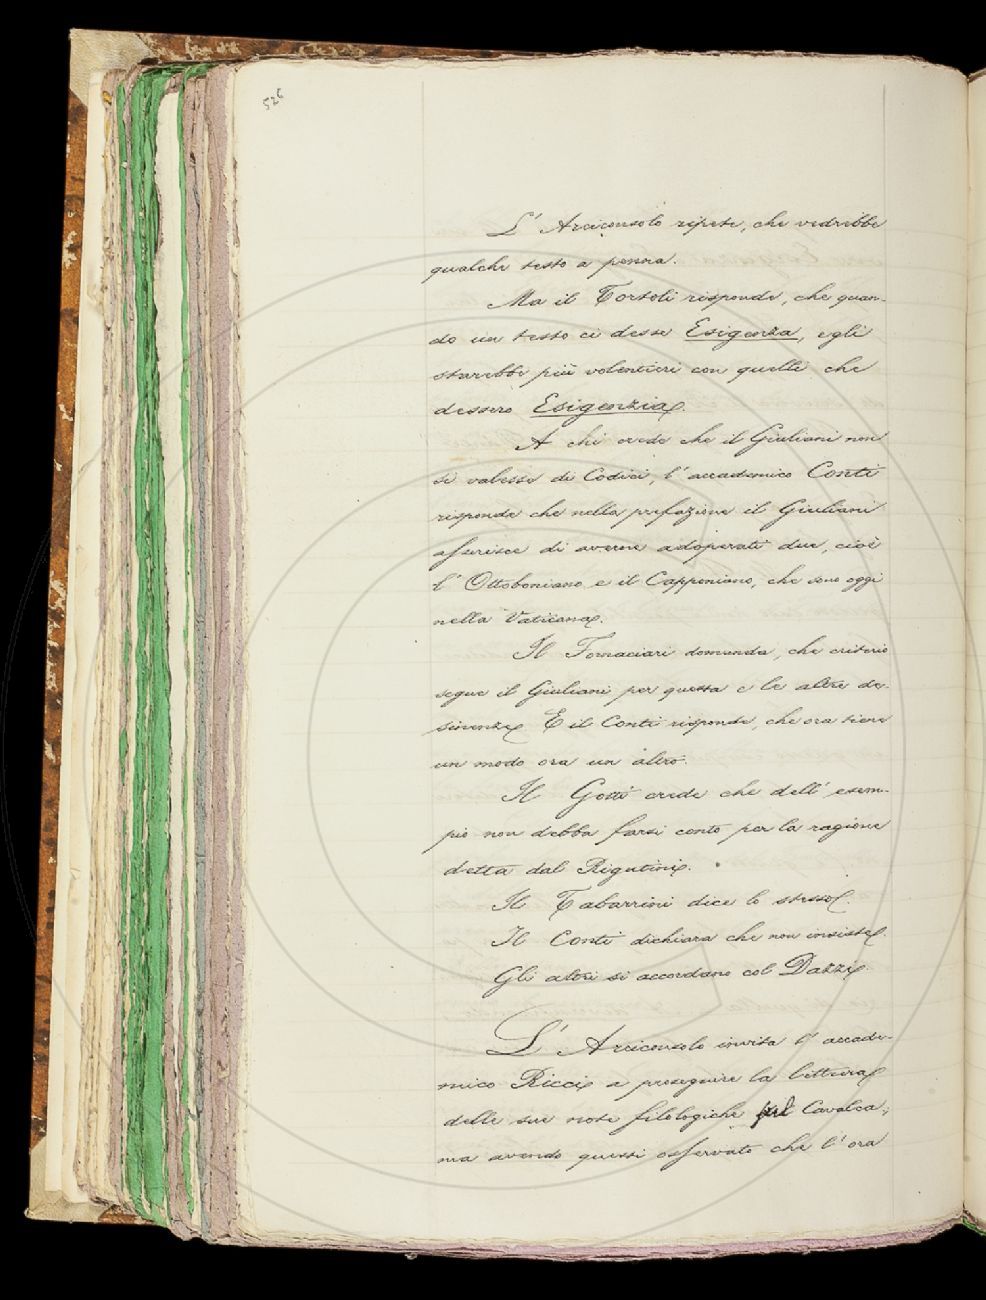 526
L' Arciconsolo ripete, che vedrebbe
qualche testo a penna.
Ma il Tortoli risponde, che quan-
do un testo ci desse Esigenza, egli
starebbe più volentieri con quelli che
dessero Esigenzia.
A chi crede che il Giuliani non
si valesse di Codici, l' accademico Conti
risponde che nella prefazione il Giuliani
asserisce di averne adoperati due, cioè
l' Ottoboniano e il Capponiano, che sono oggi
nella Vaticana.
Il Fornaciari domanda, che criterio
segue il Giuliani per questa e le altre de-
sinenze. E il Conti risponde, che ora tiene
un modo ora un altro.
Il Gotti crede che dell' esem-
pio non debba farsi conto per la ragione
detta dal Rigutini.
Il Tabarrini dice lo stesso.
Il Conti dichiara che non insiste.
Gli altri si accordano col Dazzi.
L' Arciconsolo invita l' accade-
mico Ricci a proseguire la lettura
delle sue note filologiche sul Cavalca;
ma avendo questi osservato che l' ora